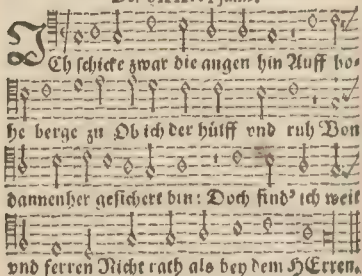 JCh schicke zwar die augen hin Auff ho-
he berge zu Ob ich der hülff vnd ruh Von
dannenher gesichert bin: Doch find' ich weit
vnd ferren Nicht rath als bey dem HErren